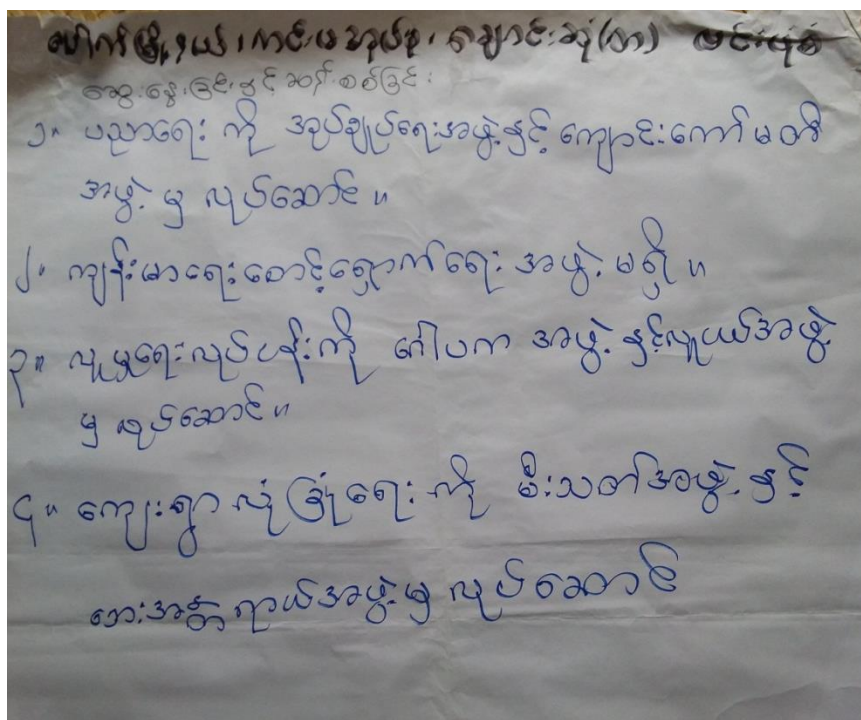 ပေါက်မြို့နယ်၊ ကင်းမအုပ်စု၊ ချောင်းဆုံ(လာ)
ဆွေးနွေးခြင်းနှင့် ဆန်းစစ်ခြင်း
၁။ ပညာရေး ကို အုပ်ချုပ်ရေးအဖွဲ့နှင့် ကျောင်းကော်မတီ
အဖွဲ့ မှ လုပ်ဆောင် ။
၂။ ကျန်းမာရေးစောင့်ရှောက်ရေး အဖွဲ့ မရှိ ။
၃။ လူမှုရေးလုပ်ငန်းကို ဂေါပက အဖွဲ့ နှင့်လူငယ်အဖွဲ့
မှ လုပ်ဆောင် ။
၄။ ကျေးရွာ လုံခြုံရေး ကို မီးသတ်အဖွဲ့ နှင့်
ဘေးအန္တရာယ်အဖွဲ့မှ လုပ်ဆောင်